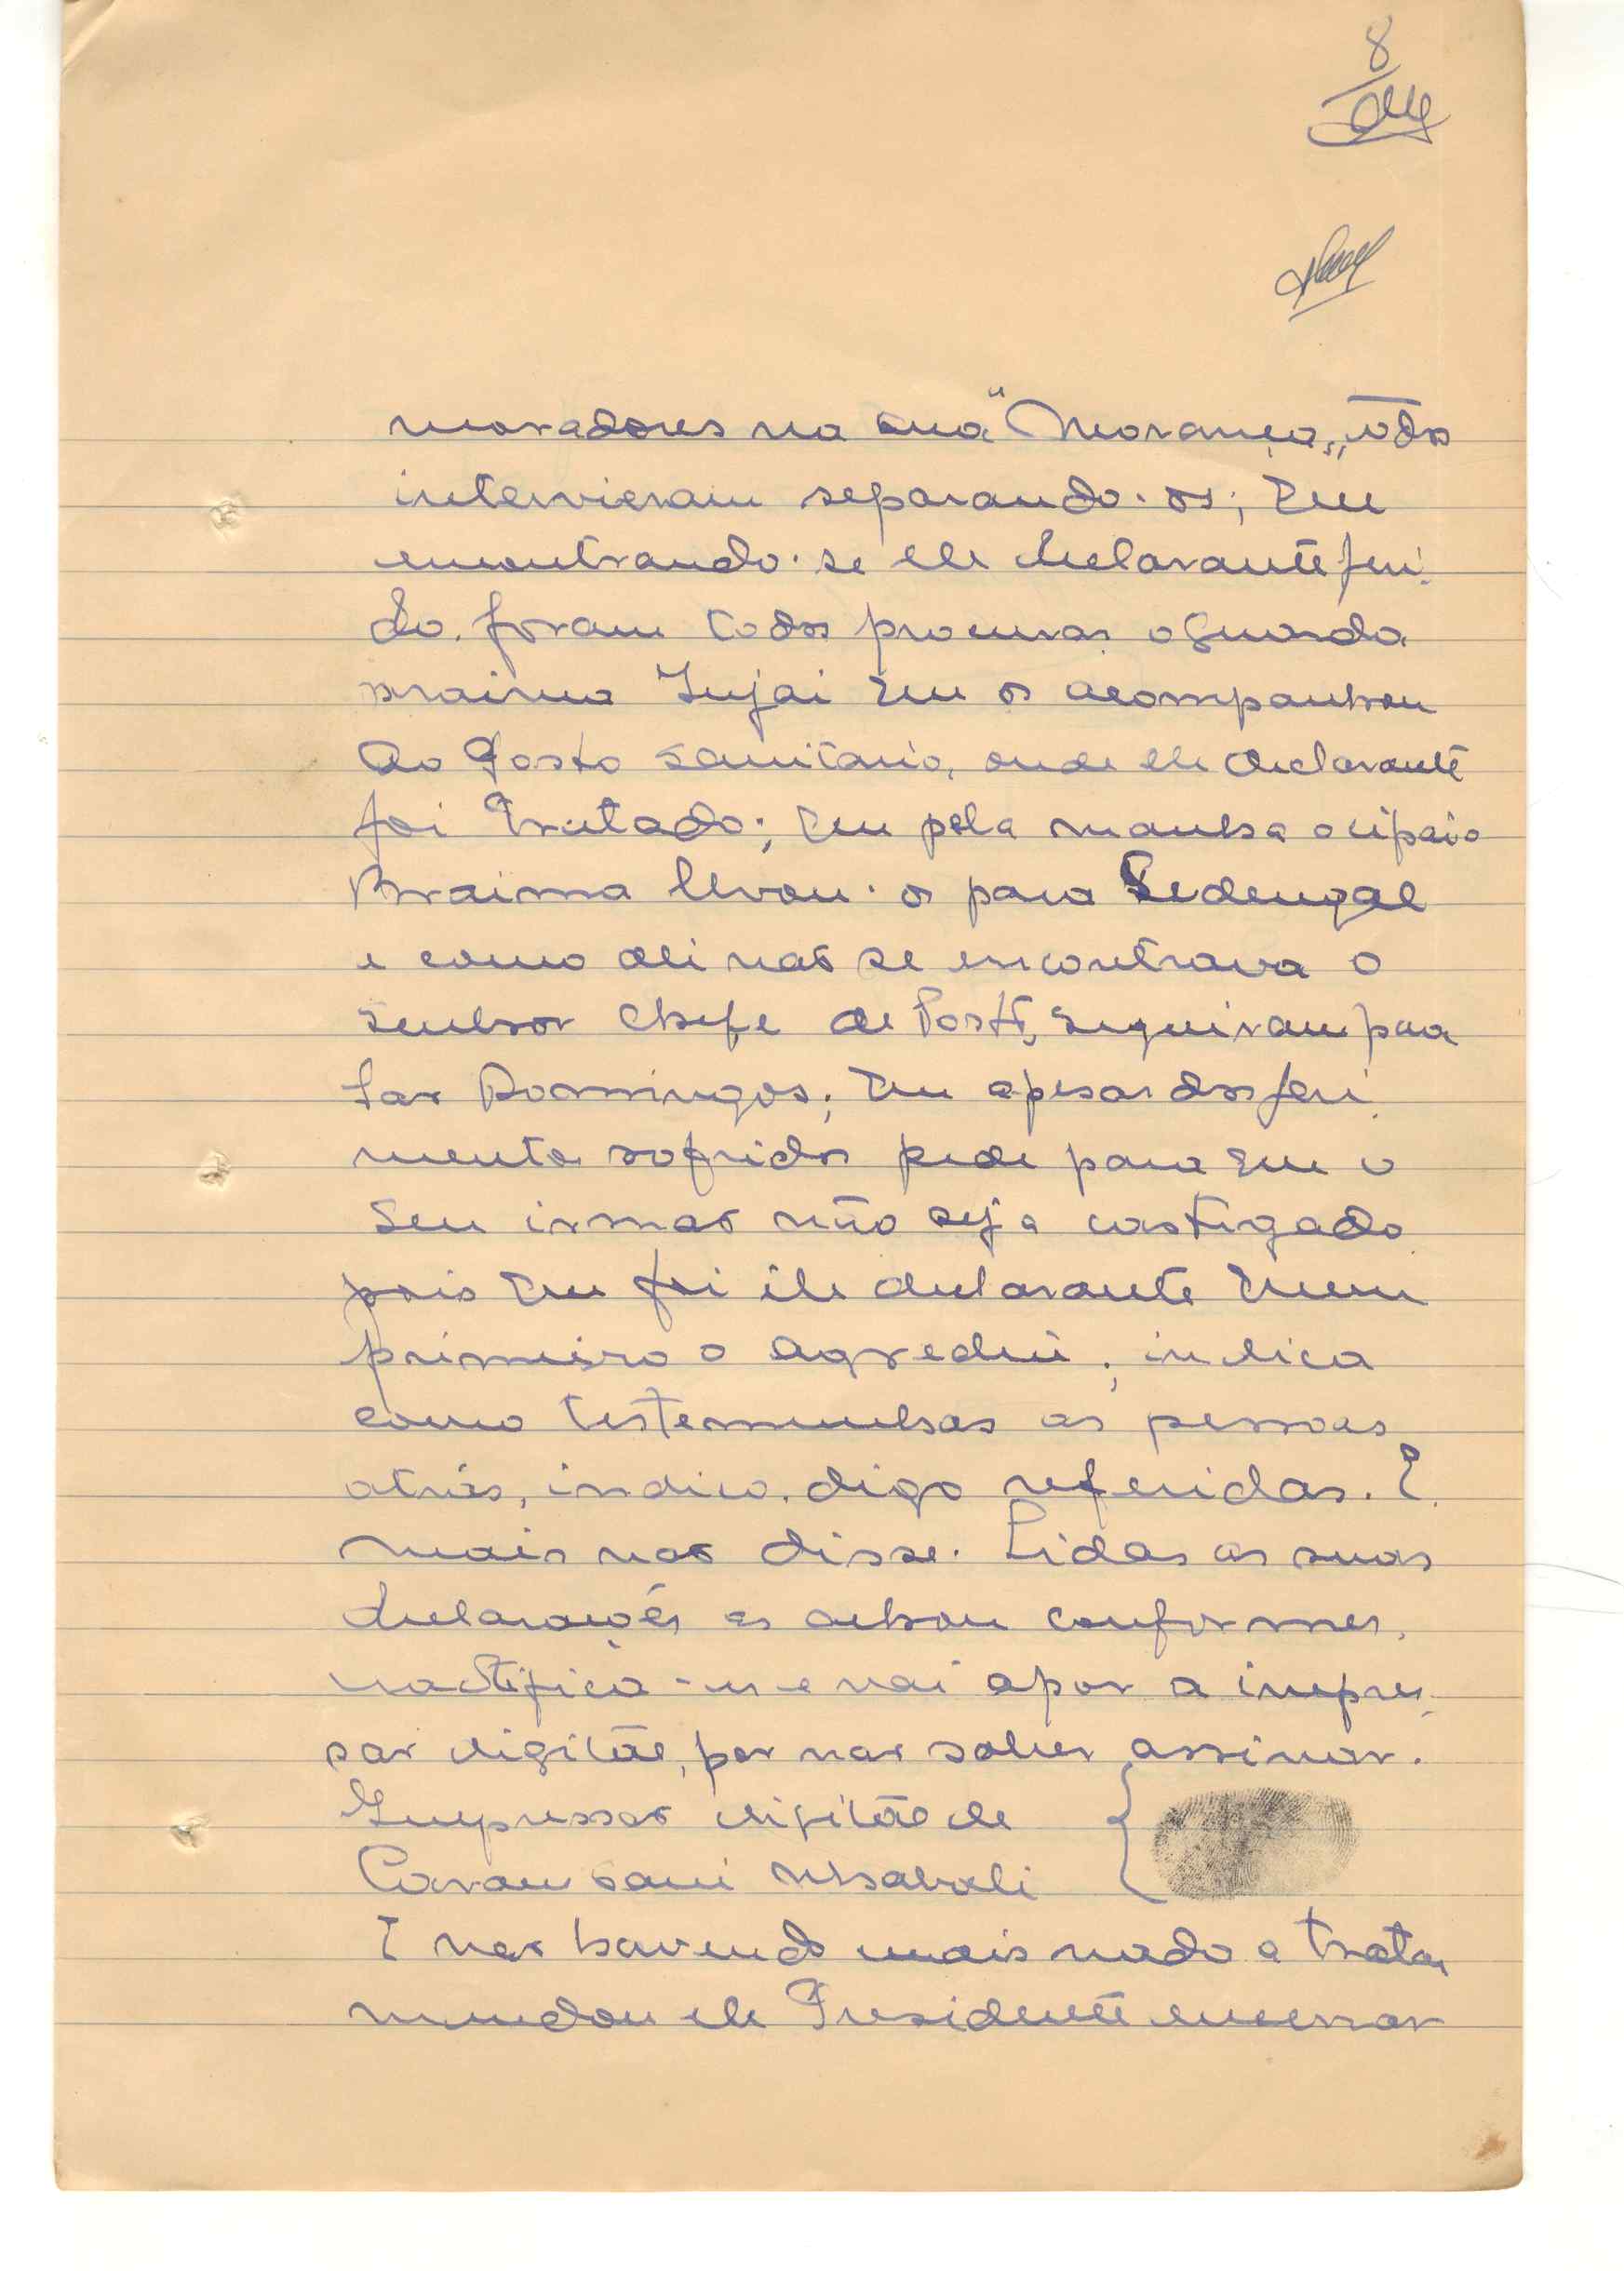 8
moradores na sua "Morança,, todos
intervieram separando-os; que
encontrando-se ele declarante feri-
do, foram todos procurar o guarda
Braima Injai que os acompanhou
ao Posto Sanitario, onde ele declarante
foi tratado; que pela manhã o cipaio
Braima levou-os para Sedengal
e como ali não se encontrava o
senhor Chefe de Posto, seguiram para
São Domingos; que apesar dos feri-
mentos sofridos pede para que o
seu irmão não seja castigado
pois que foi ele declarante quem
primeiro o agrediu; indica
como testemunhas as pessoas
atrás, indico, digo referidas. E
mais não disse. Lidas as suas
declarações as achou conformes,
ractifica-as e vai apor a impres-
são digital, por não saber assinar.
Impressão digital de
Sani
E não havendo mais nada a tratar
mandou ele Presidente encerrar